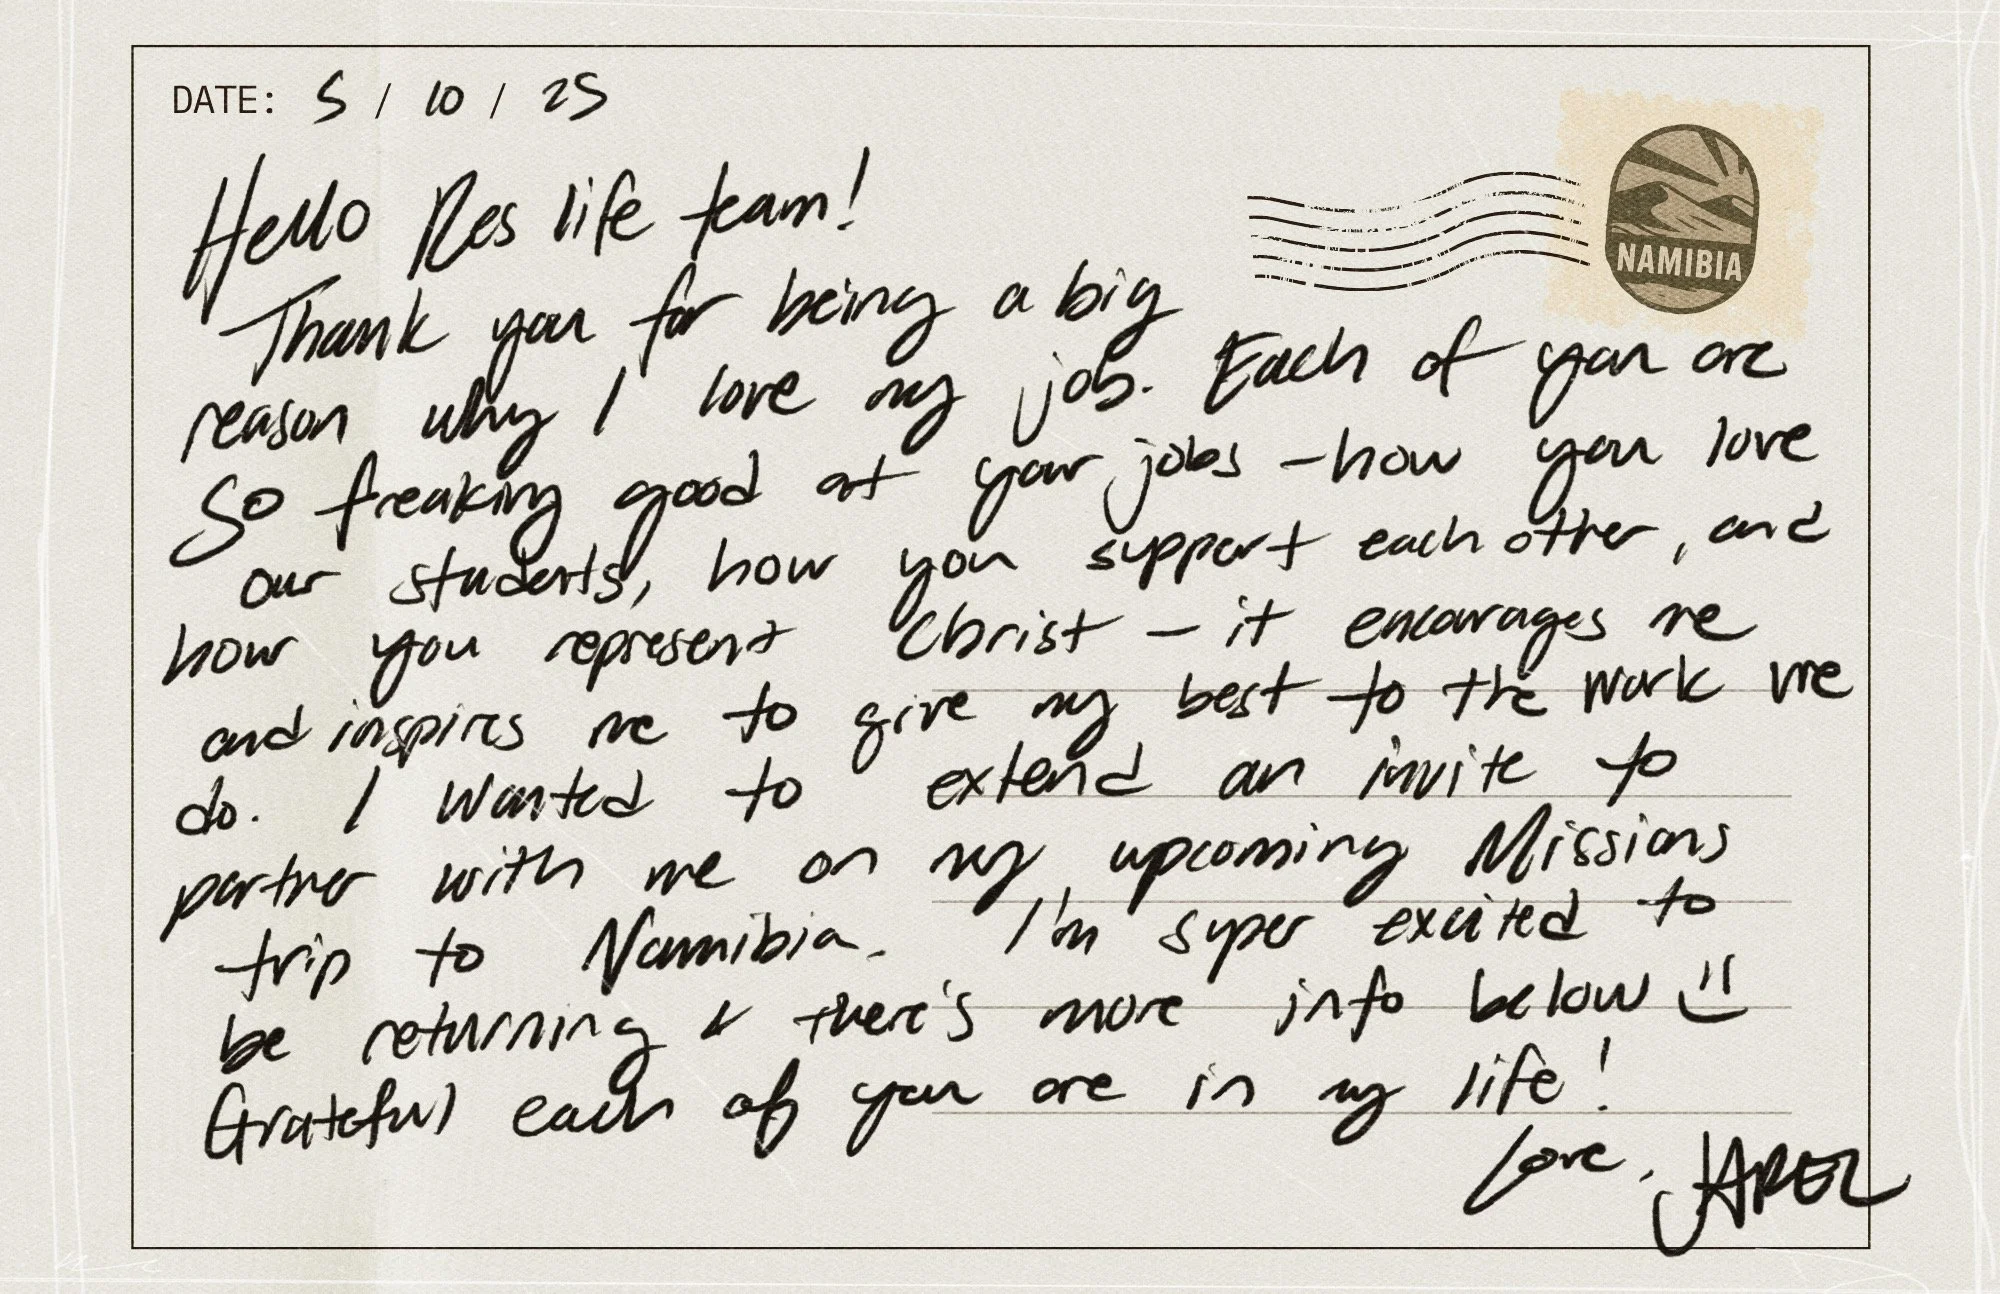 DATE: 5 / 10 / 25
Hello Res life team!
Thank you for being a big
reason why I love my job. Each of you are
so freaking good at your jobs - how you love
our students, how you support each other, and
how you represent Christ - it encourages me
and inspires me to give my best to the work we
do. I wanted to extend an invite to
partner with me on my upcoming Missions
trip to Namibia. I'm super excited to
be returning & there's more info below :)
Grateful each of you are in my life!
Love, JAREL
NAMIBIA